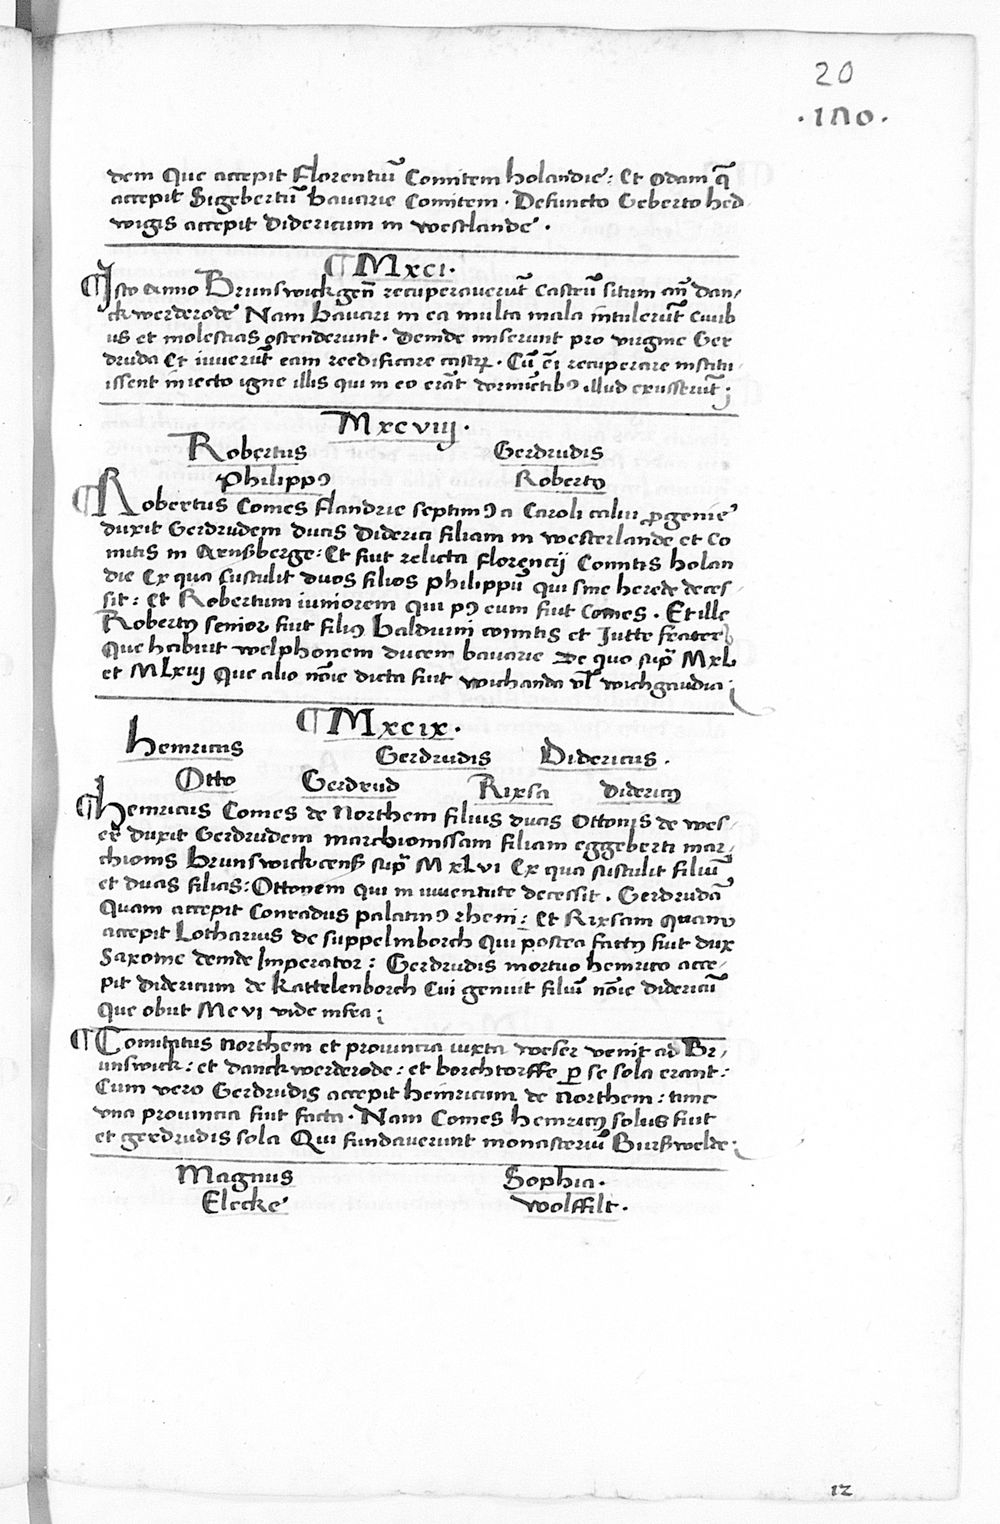 20
·1𐌡0·
dem Que accepit Florentiū Comitem holandie: Et Odam q̄
accepit Sigebertū bavarie Comitem · Defuncto Geberto hed
wigis accepit Didericum in westlande ·
¶ Mxci ·
¶ Isto Anno Brunswickgen̄ recuperaverūt Castrū situm an̄ Dan/
ckwerderode Nam bavari in ea multa mala intulerūt Civib
us et molestias ostenderunt · Deinde miserunt pro virgine Ger
druda Et iuverūt eam reedificare castrꝝ · Cū ei recuperare institu
issent iniecto igne illis qui in eo erāt dormiētibꝰ illud exusserūt ;
Mxcviij ·
Robertus Gerdrudis
Philippꝰ Roberto
¶ Robertus Comes flandrie septimꝰ a Caroli calui ꝓgenie
duxit Gerdrudem ducis Diderici filiam in westerlande et Co
mitis in Arnßberge: Et fuit relicta florencij Comitis holan
die Ex qua sustulit duos filios philippū qui sine herede deces
sit: Et Robertum iuniorem qui pꝰ eum fuit Comes · Et ille
Robertꝰ senior fuit filiꝰ balduini comitis et Jutte frater
Que habuit welphonem ducem bavarie De quo sup̄ Mxl
et MLxiij Que alio noīe dicta fuit wichanda vl̄ wichgaudia ;
¶ Mxcix ·
henricus Gerdrudis Didericus ·
Otto Gerdrud Rixsa didericꝰ
¶ henricus Comes de Northem filius ducis Ottonis de wes/
er duxit Gerdrudem marchionissam filiam eggeberti mar/
chionis brunswickcenß sup̄ MxLvi Ex qua sustulit filiū
et duas filias: Ottonem qui in iuventute decessit · Gerdrudā
Quam accepit Conradus palatinꝰ rheni: Et Rixsam quam
accepit Lotharius de suppelinborch Qui postea factꝰ fuit dux
Saxonie deinde Imperator: Gerdrudis mortuo henrico acce/
pit didericum de kattelenborch Cui genuit filiū noīe didericū
Que obiit Mcvi vide infra ;
¶ Comitatus northem et provincia iuxta weser venit ad Br/
unswick: et danckwerderode: et borchtorffe ꝑ se sola erant:
Cum vero Gerdrudis accepit heinricum de northem: tunc
vna provincia fuit facta · Nam Comes henricꝰ solus fuit
et gerdrudis sola Qui fundaverunt monasteriū Burßwelde ;
Magnus Sophia ·
Elecke wolffilt ·
12